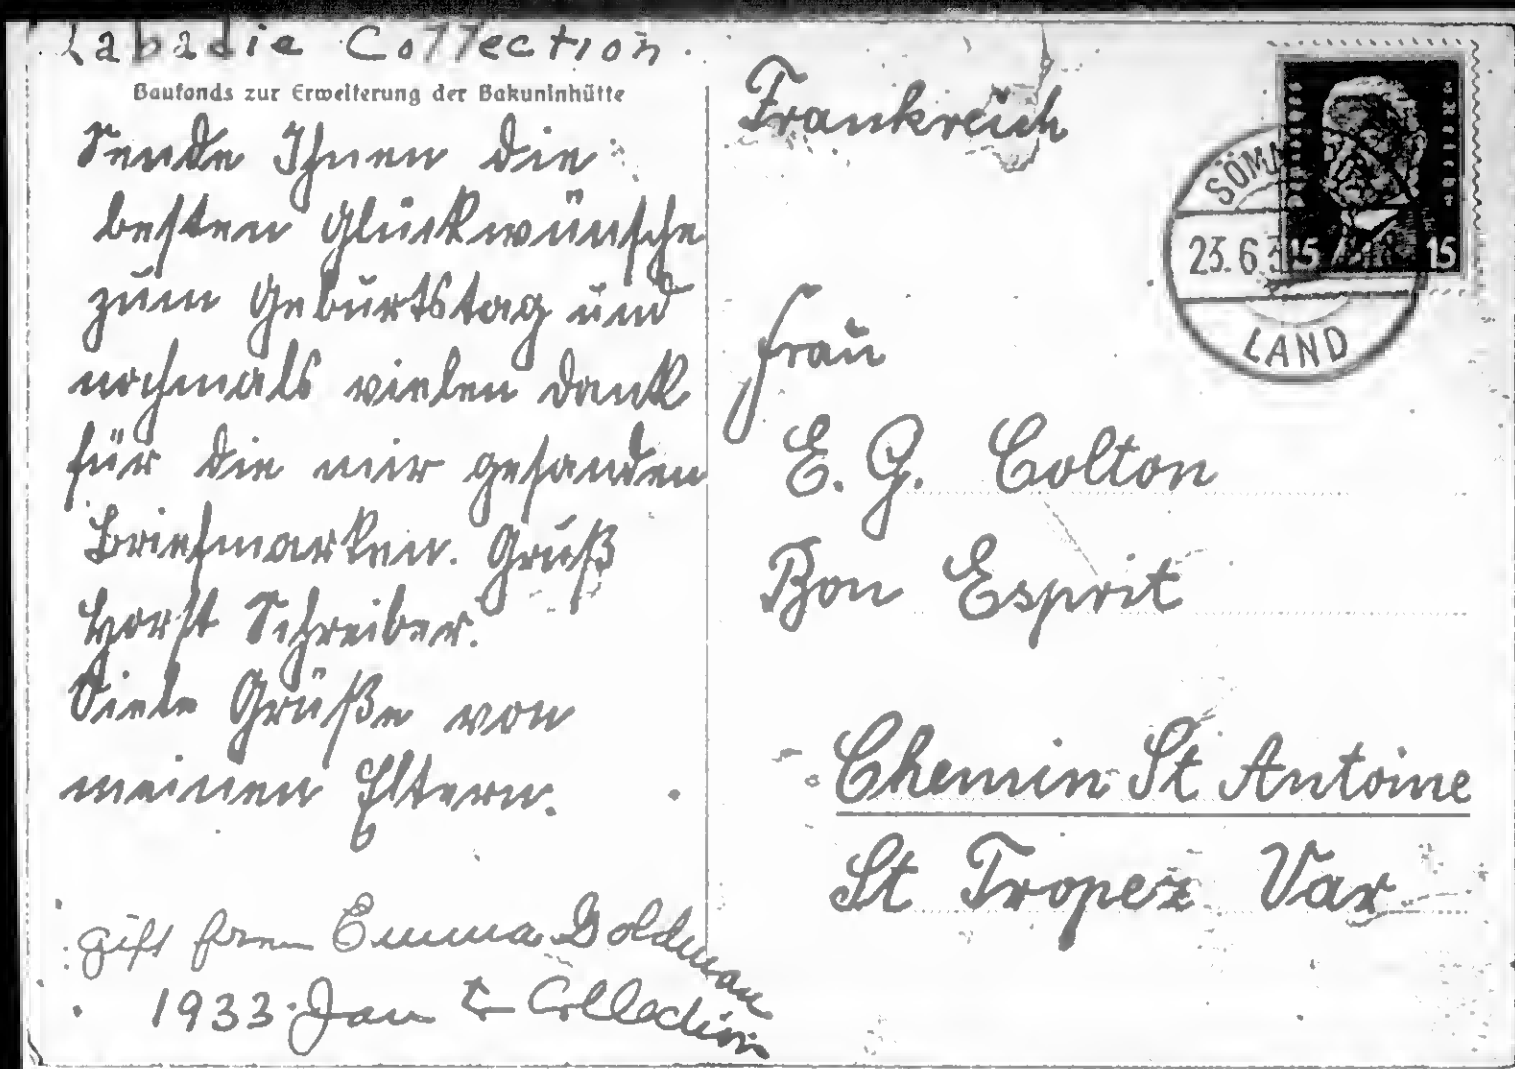 Labadie Collection.
Baufonds zur Erweiterung der Bakuninhütte
Sende Ihnen die
besten Glückwünsche
zum Geburtstag und
nochmals vielen Dank
für die mir gesanden
Briefmarken. Gruß
Horst Schreiber.
Viele Grüße von
meinen Eltern.
gift from Emma Goldman
1933 Jan Collection
Frankreich
Frau
E. G. Colton
Bon Esprit
Chemin St Antoine
St Tropez Var
23.6.
LAND
15 15